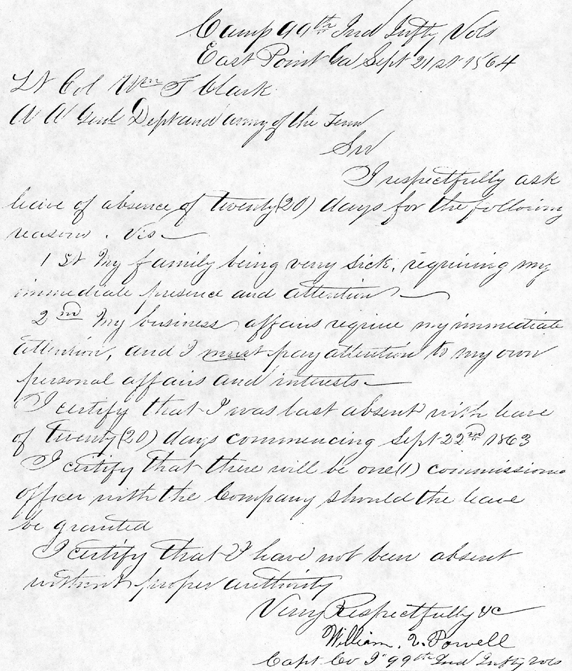 Camp 99th Ind Infty Vols
East Point Ga Sept 21st 1864
Lt Col Wm T Clark
A A Genl Dept and Army of the Tenn
Sir
I respectfully ask
leave of absence of twenty (20) days for the following
reasons. Vis—
1st My family being very sick, requiring my
immediate presence and attention—
2nd My business affairs require my immediate
attention, and I must pay attention to my own
personal affairs and interests—
I certify that I was last absent with leave
of twenty (20) days commencing Sept 22nd 1863
I certify that there will be one (1) commissione
officer with the Company should the leave
be granted
I certify that I have not been absent
without proper authority
Very Respectfully &c
William V. Powell
Capt Co I 99th Ind Infty Vols